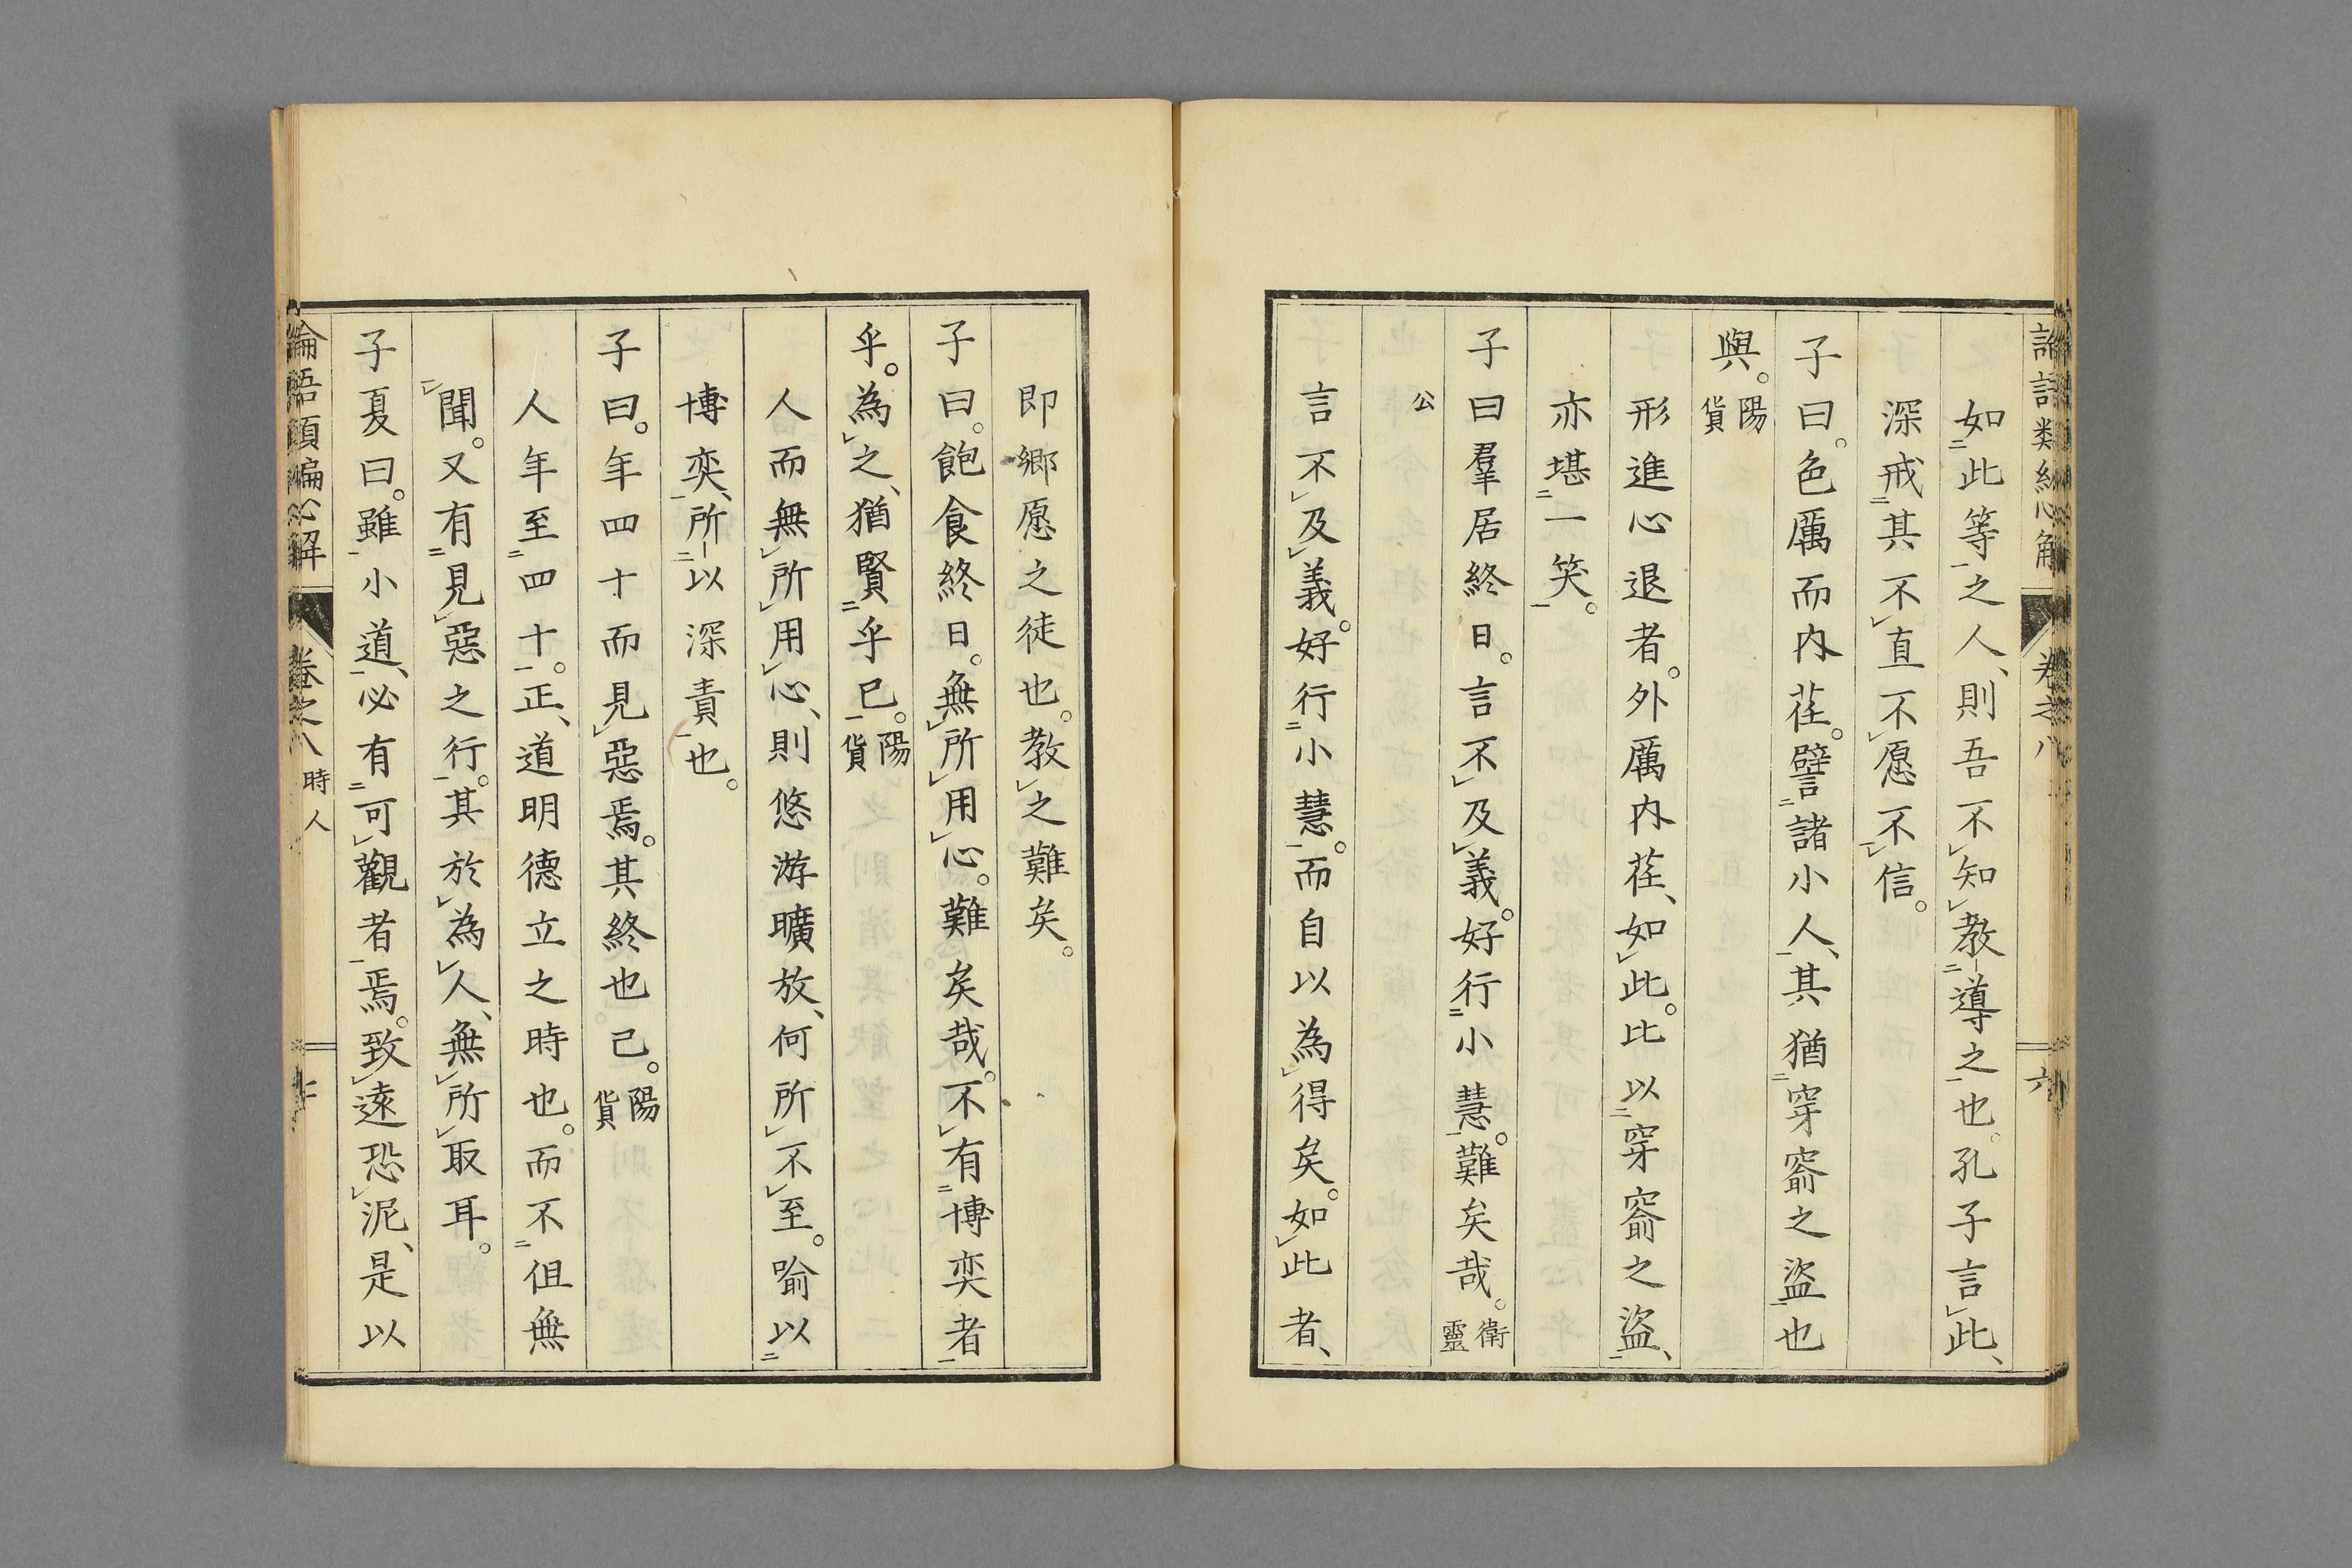 如此等之人、則吾不知教導之也。孔子言此、
深戒其不直不愿不信。
子曰。色厲而内荏。譬諸小人、其猶穿窬之盜也
與。陽貨
形進心退者。外厲内荏、如此。比以穿窬之盜、
亦堪一笑。
子曰羣居終日。言不及義。好行小慧。難矣哉。衛靈
公
言不及義。好行小慧。而自以為得矣。如此者、
即鄉愿之徒也。教之難矣。
子曰。飽食終日。無所用心。難矣哉。不有博奕者
乎。為之、猶賢乎已。陽貨
人而無所用心、則悠游曠放、何所不至。喻以
博奕、所以深責也。
子曰。年四十而見惡焉。其終也已。陽貨
人年至四十。正、道明德立之時也。而不但無
聞。又有見惡之行。其於為人、無所取耳。
子夏曰。雖小道、必有可觀者焉。致遠恐泥、是以
卷之八 時人